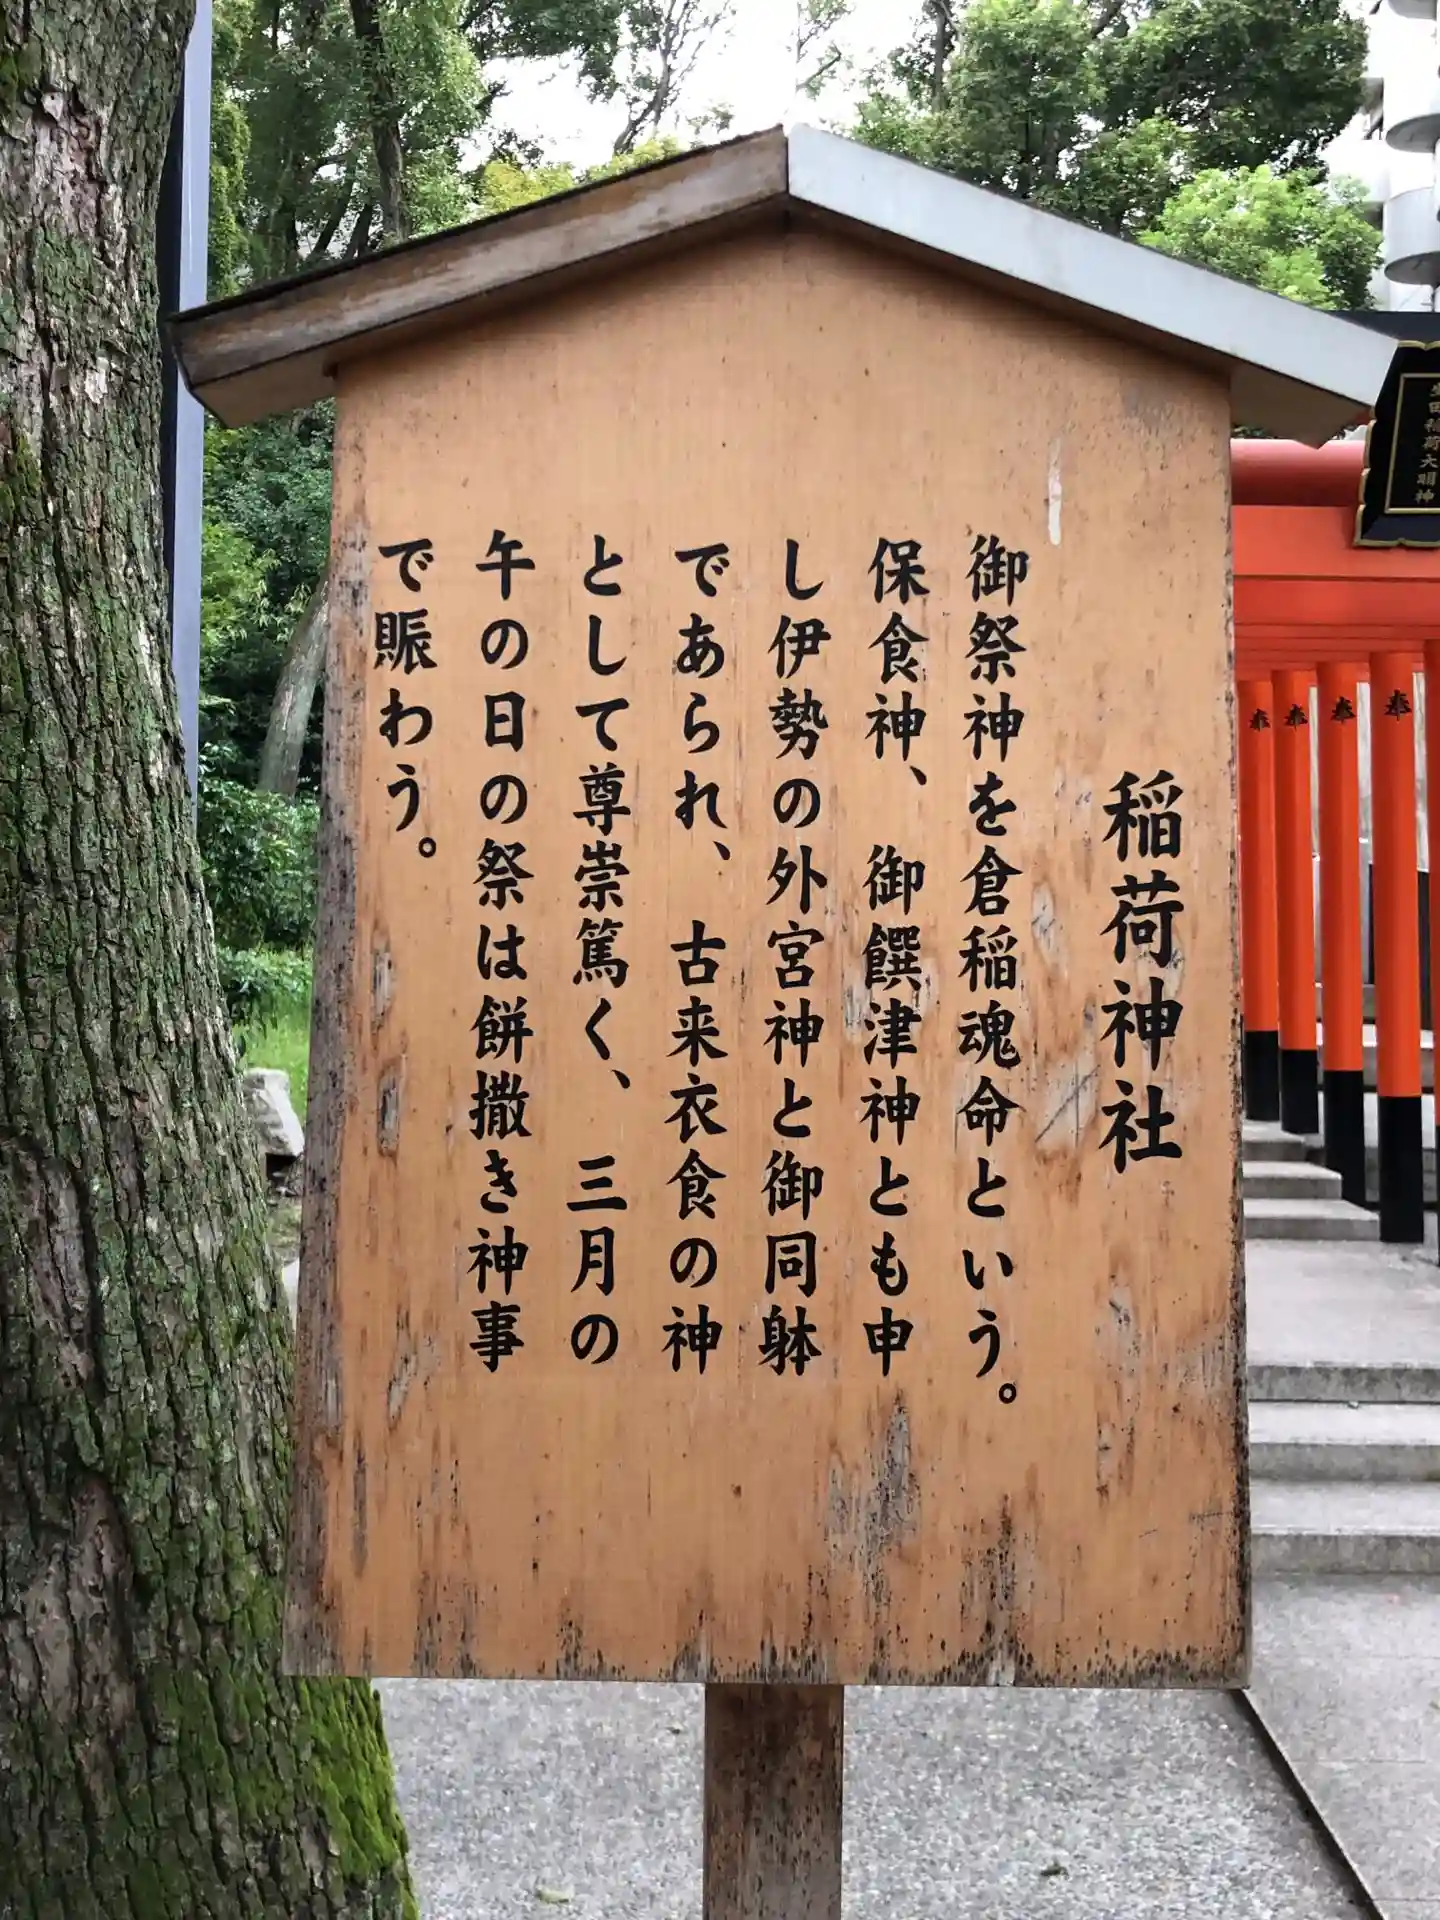 稲荷神社
御祭神を倉稲魂命という。
保食神、御饌津神とも申
し伊勢の外宮神と御同躰
であられ、古来衣食の神
として尊崇篤く、三月の
午の日の祭は餅撒き神事
で賑わう。
生田稲荷大明神
奉
奉
奉
奉